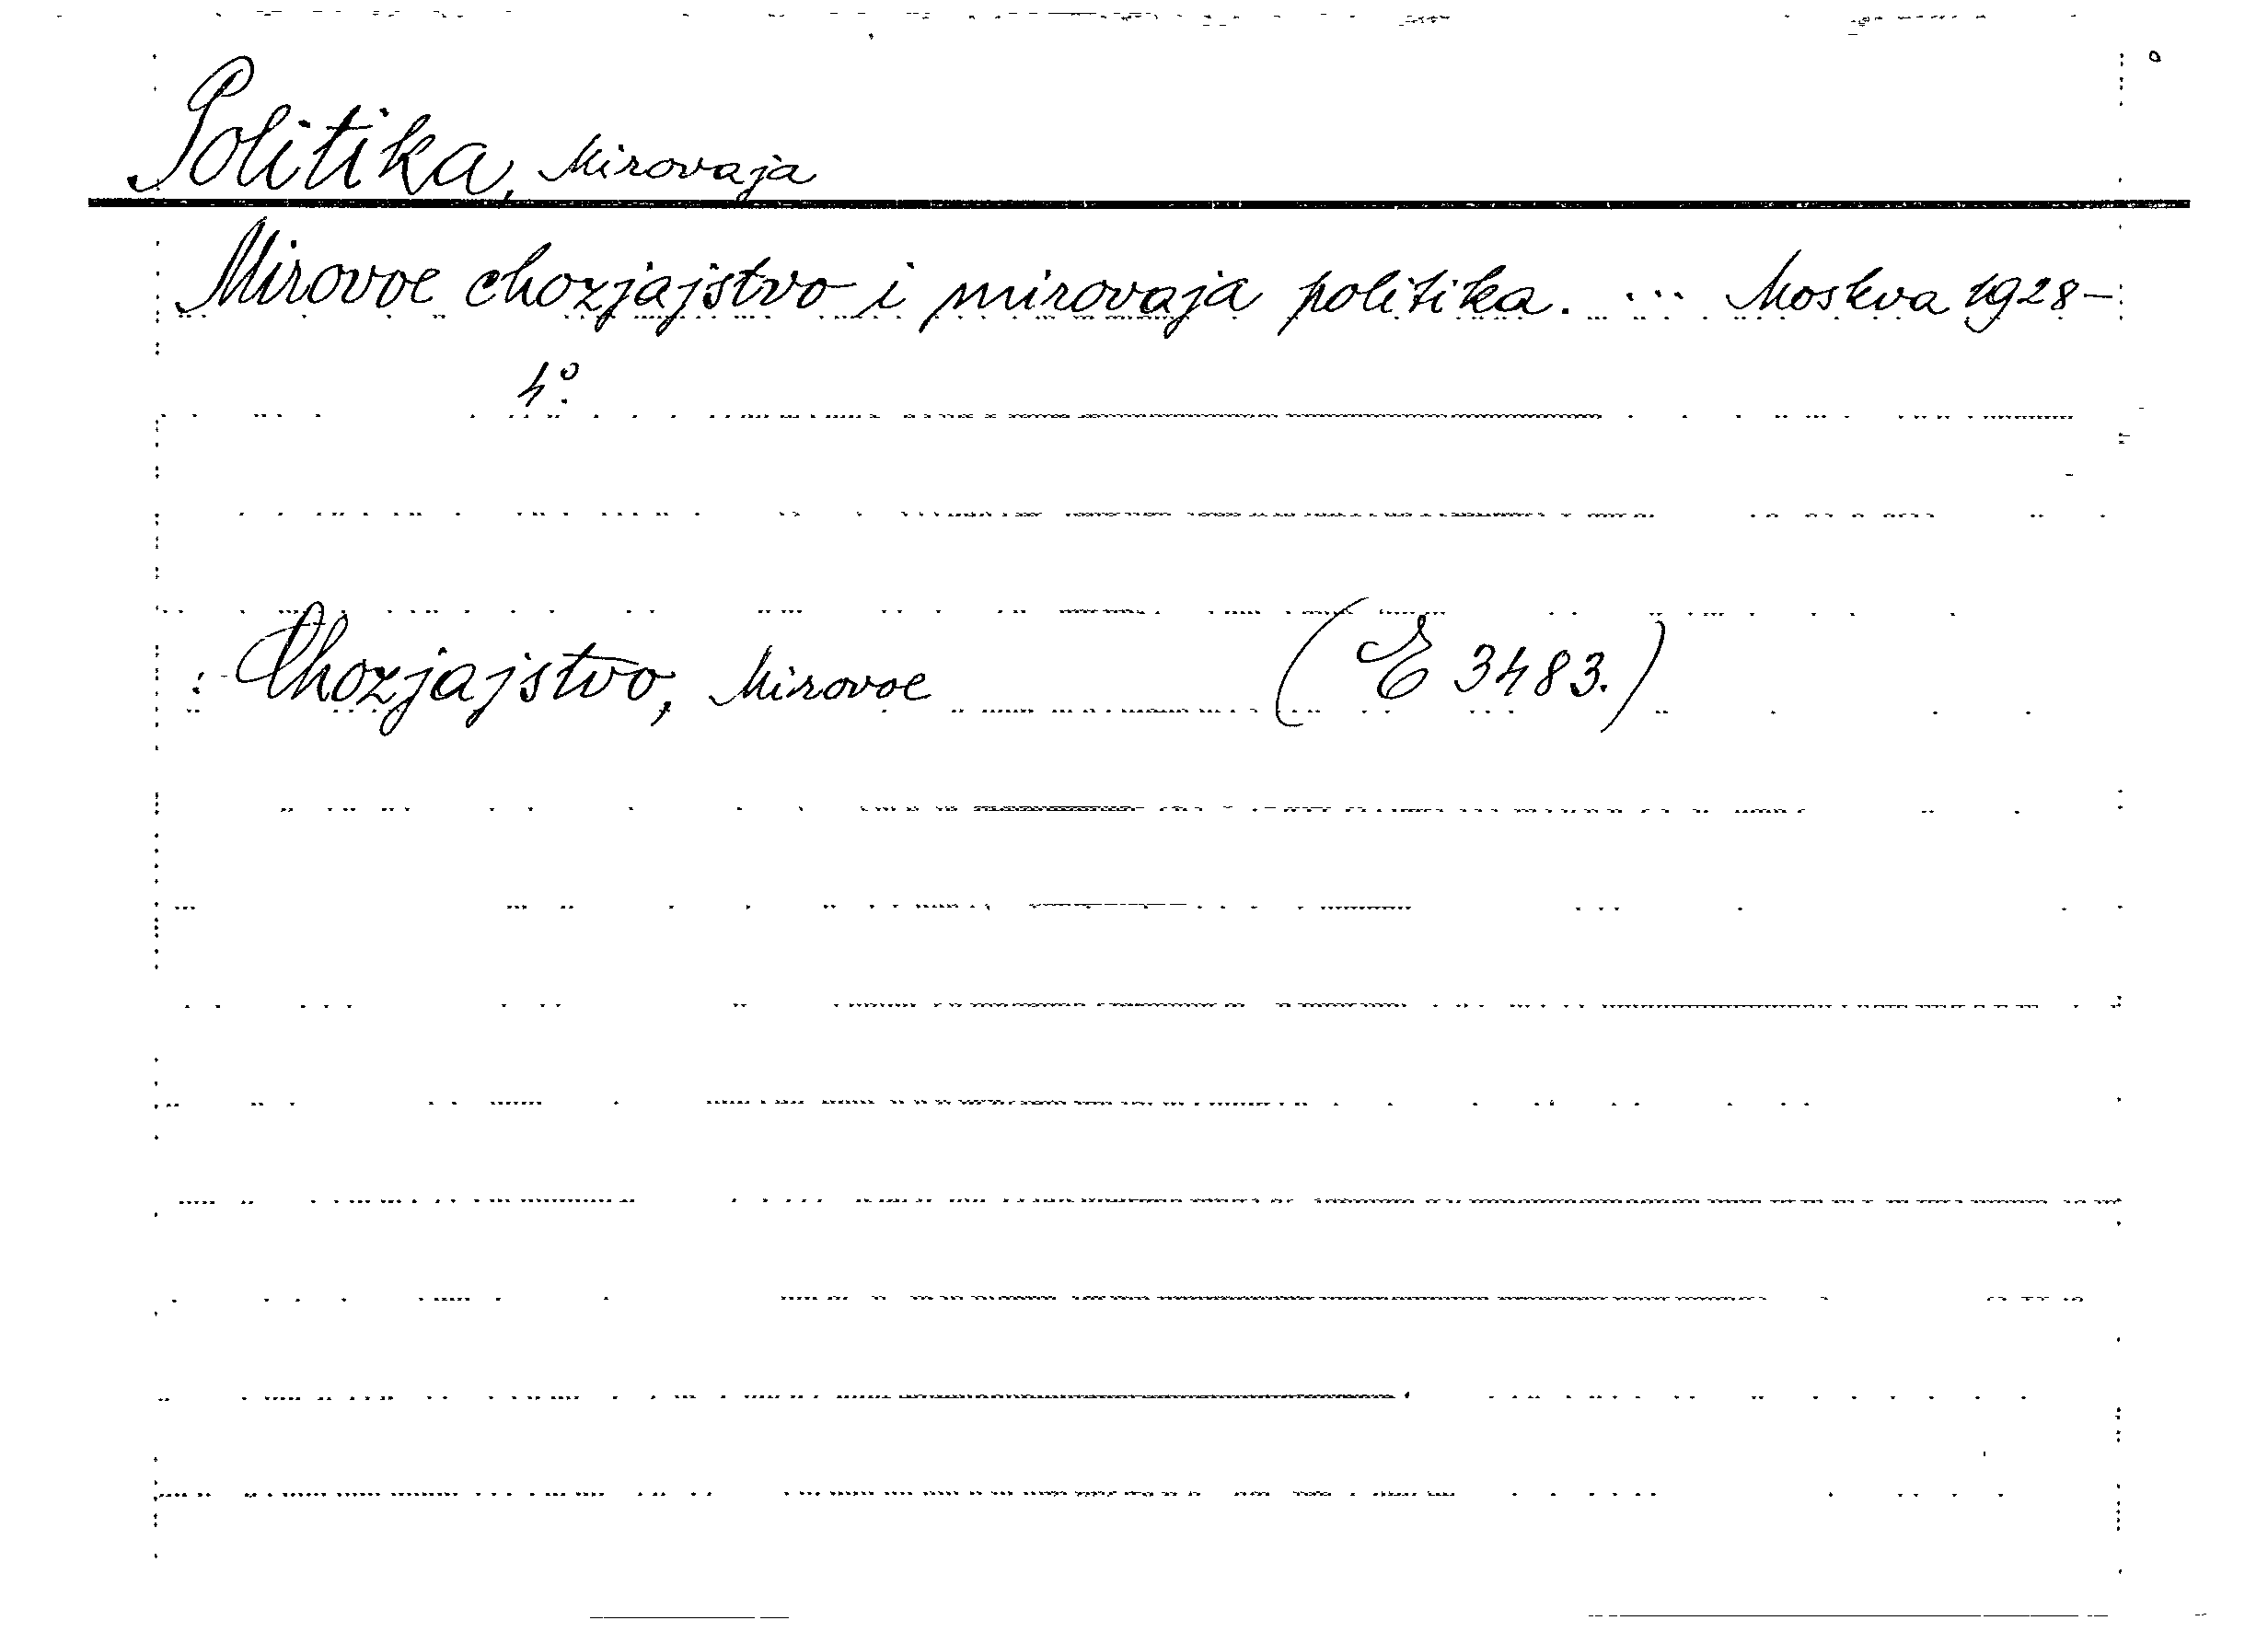 Politika, Mirovaja
Mirovoe chozjajstvo i mirovaja politika. ... Moskva 1928-
4:o
: Chozjajstvo, Mirovoe (E 3483.)